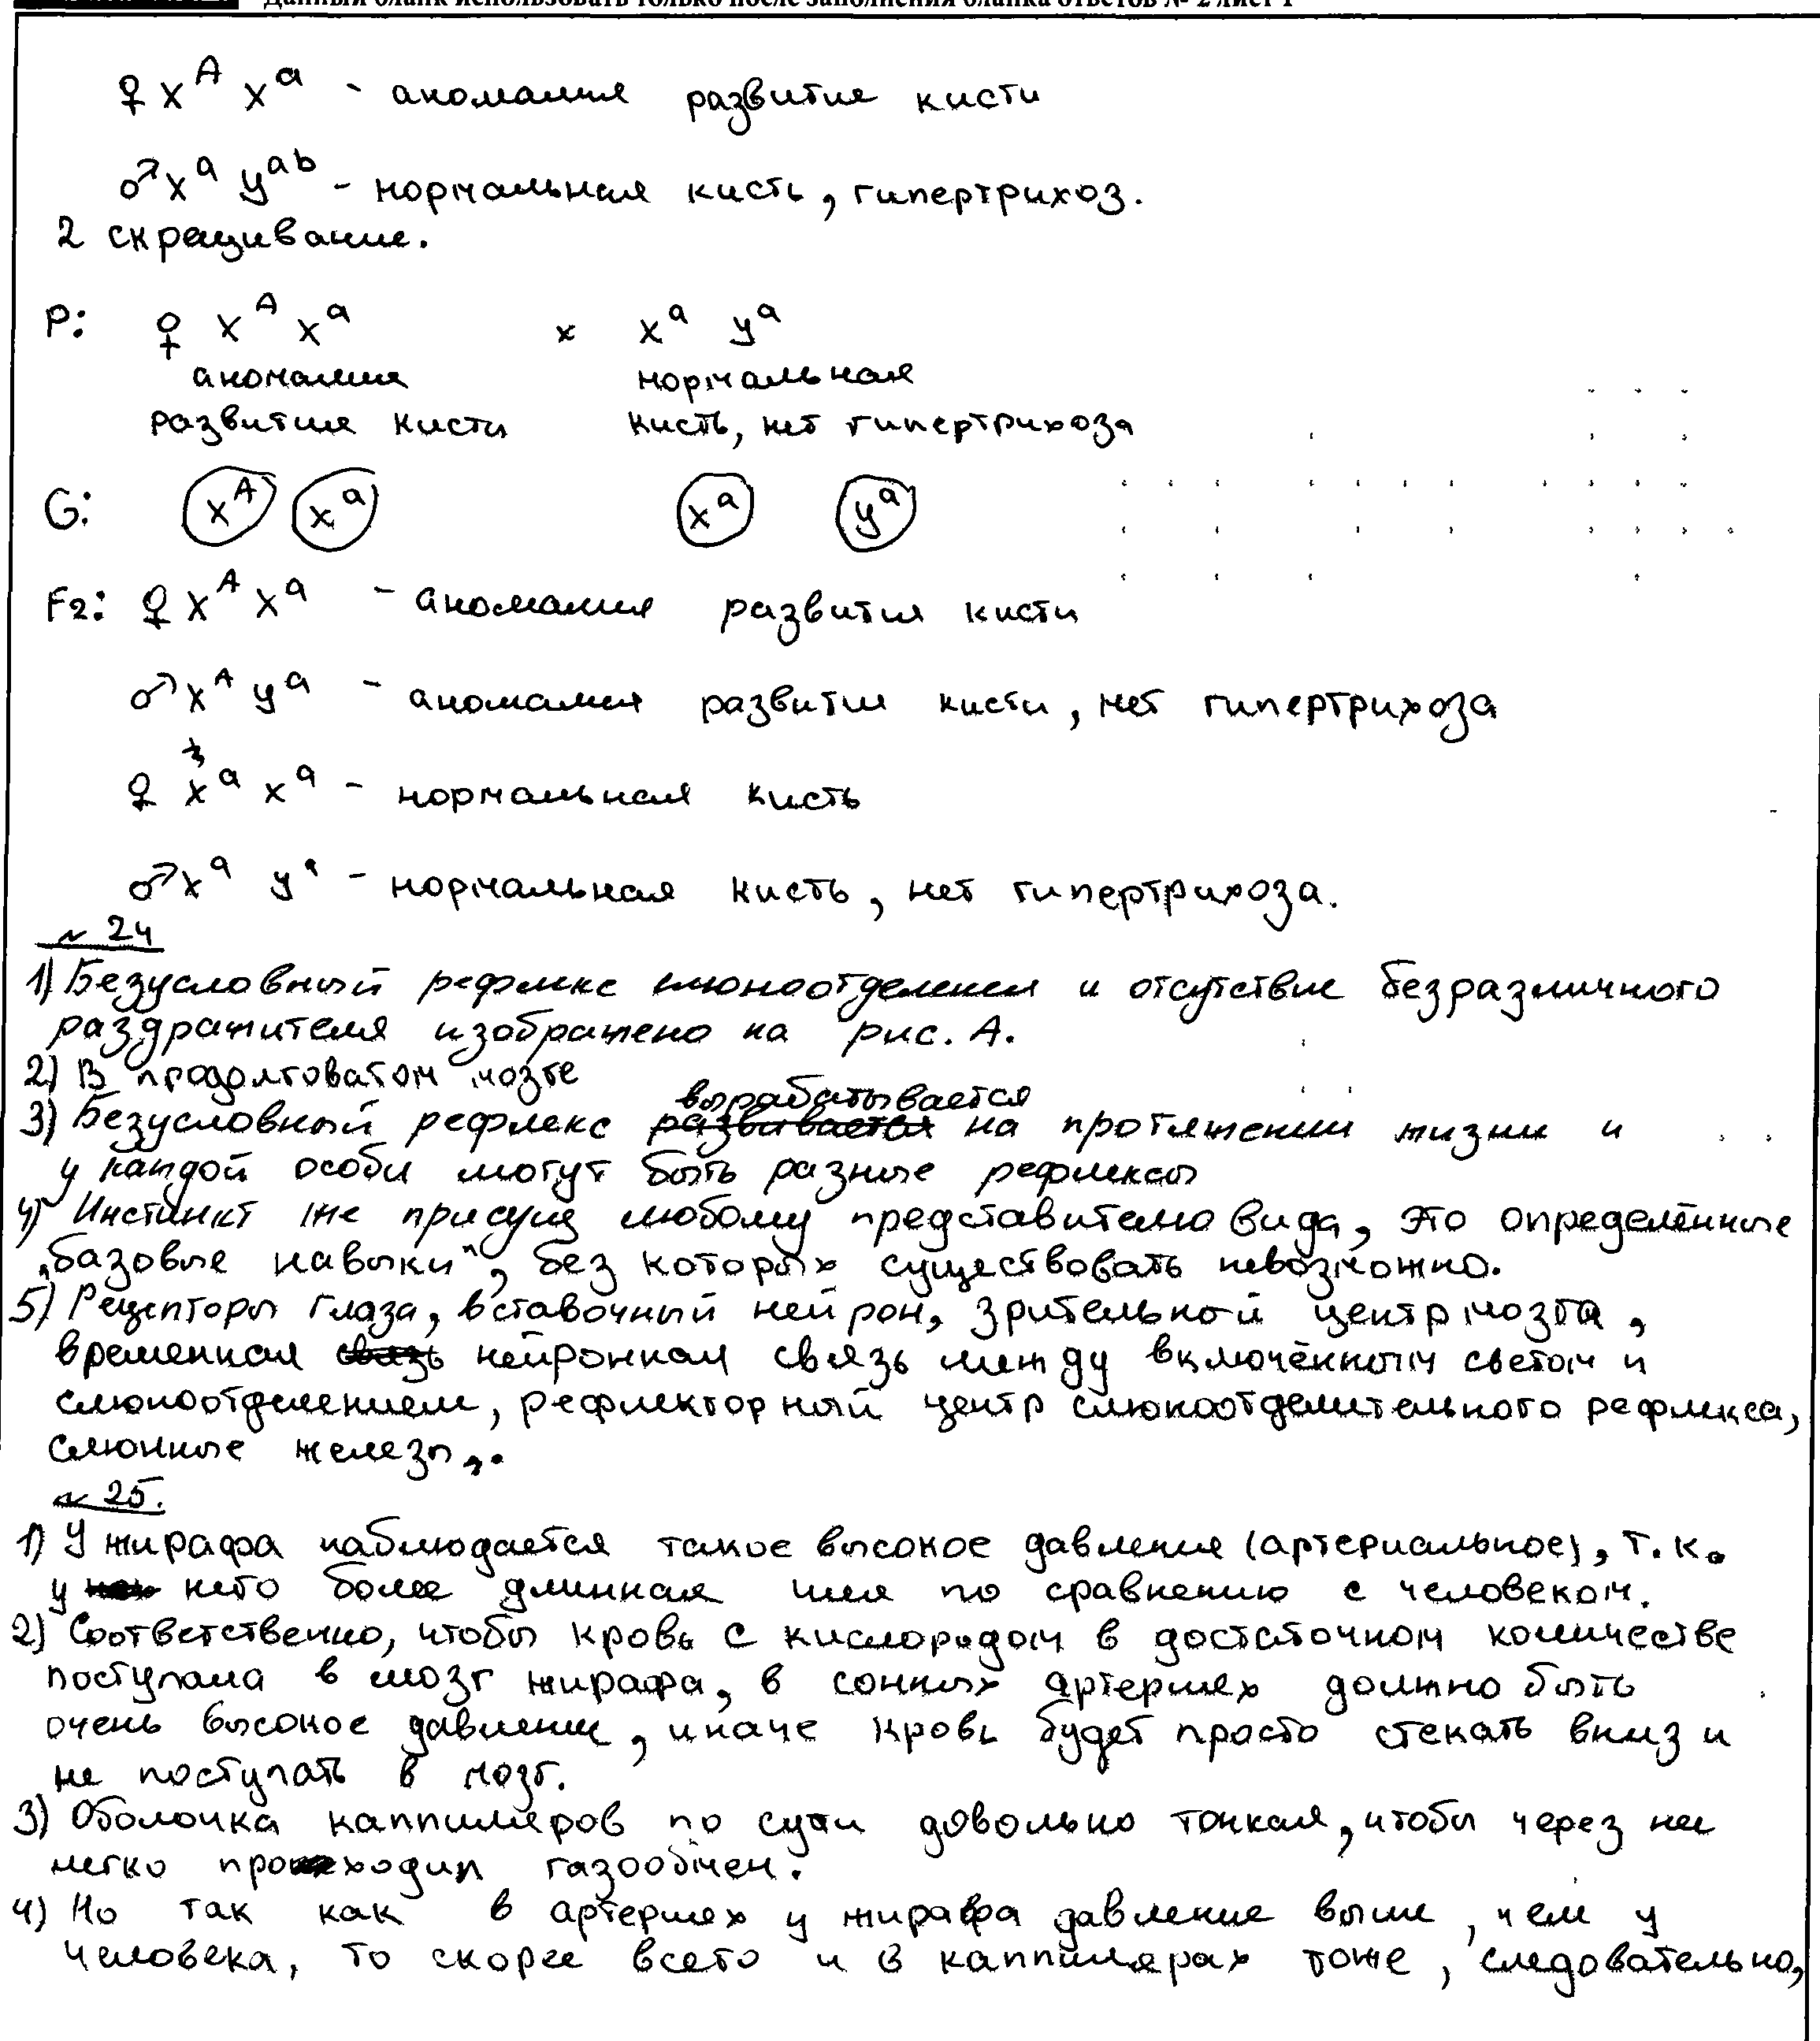 Данный бланк использовать только после заполнения бланка ответов № 2 лист 1
♀ X^A X^a - аномалия развитие кисти
♂ X^a y^ab - нормальная кисть, гипертрихоз.
2 скрещивание.
P: ♀ X^A X^a × X^a y^a
аномалия нормальная
развития кисти кисть, нет гипертрихоза
G: X^A X^a X^a y^a
F2: ♀ X^A X^a - аномалия развития кисти
♂ X^A y^a - аномалия развития кисти, нет гипертрихоза
♀ X^a X^a - нормальная кисть
♂ X^a y^a - нормальная кисть, нет гипертрихоза.
№ 24
1) Безусловный рефлекс слюноотделения и отсутствие безразличного
раздражителя изображено на рис. А.
2) В продолговатом мозге
вырабатывается
3) Безусловный рефлекс развивается на протяжении жизни и
у каждой особи могут быть разные рефлексы
4) Инстинкт же присущ любому представителю вида, это определённые
„базовые навыки", без которых существовать невозможно.
5) Рецепторы глаза, вставочный нейрон, зрительной центр мозга,
временная связь нейронная связь между включённым светом и
слюноотделением, рефлекторный центр слюноотделительного рефлекса,
слюнные железы.
№ 25.
1) У жирафа наблюдается такое высокое давление (артериальное), т.к.
у него более длинная шея по сравнению с человеком.
2) Соответственно, чтобы кровь с кислородом в достаточном количестве
поступала в мозг жирафа, в сонных артериях должно быть
очень высокое давление, иначе кровь будет просто стекать вниз и
не поступать в мозг.
3) Оболочка каппиляров по сути довольно тонкая, чтобы через неё
легко проходил газообмен.
4) Но так как в артериях у жирафа давление выше, чем у
человека, то скорее всего и в каппилярах тоже, следовательно,